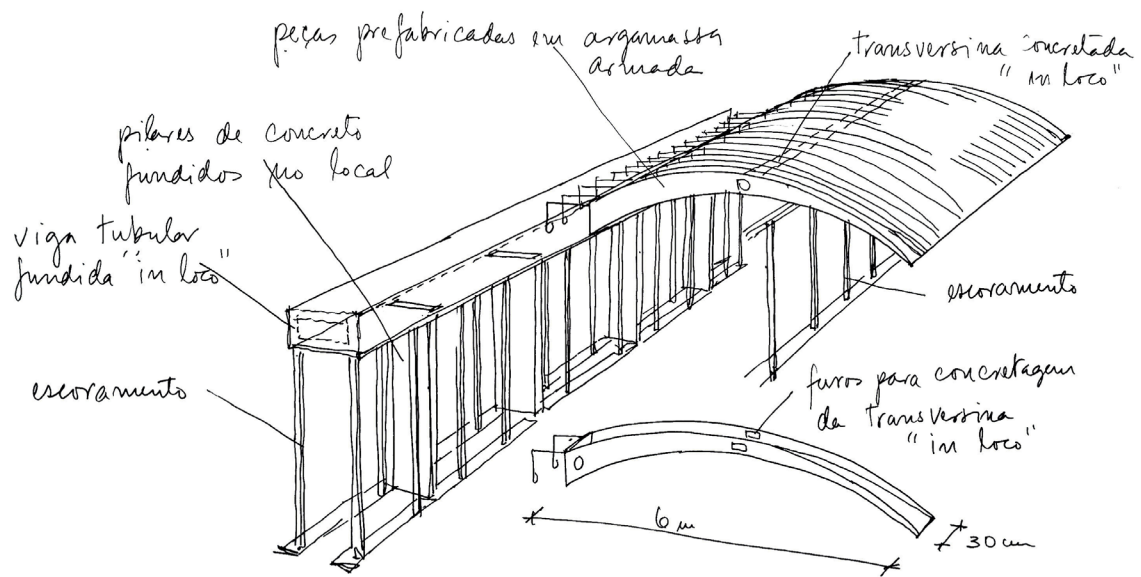 peças prefabricadas em argamassa
armada
transversina concretada
"in loco"
pilares de concreto
fundidos no local
viga tubular
fundida "in loco"
escoramento
escoramento
furos para concretagem
da transversina
"in loco"
6 m
30 cm